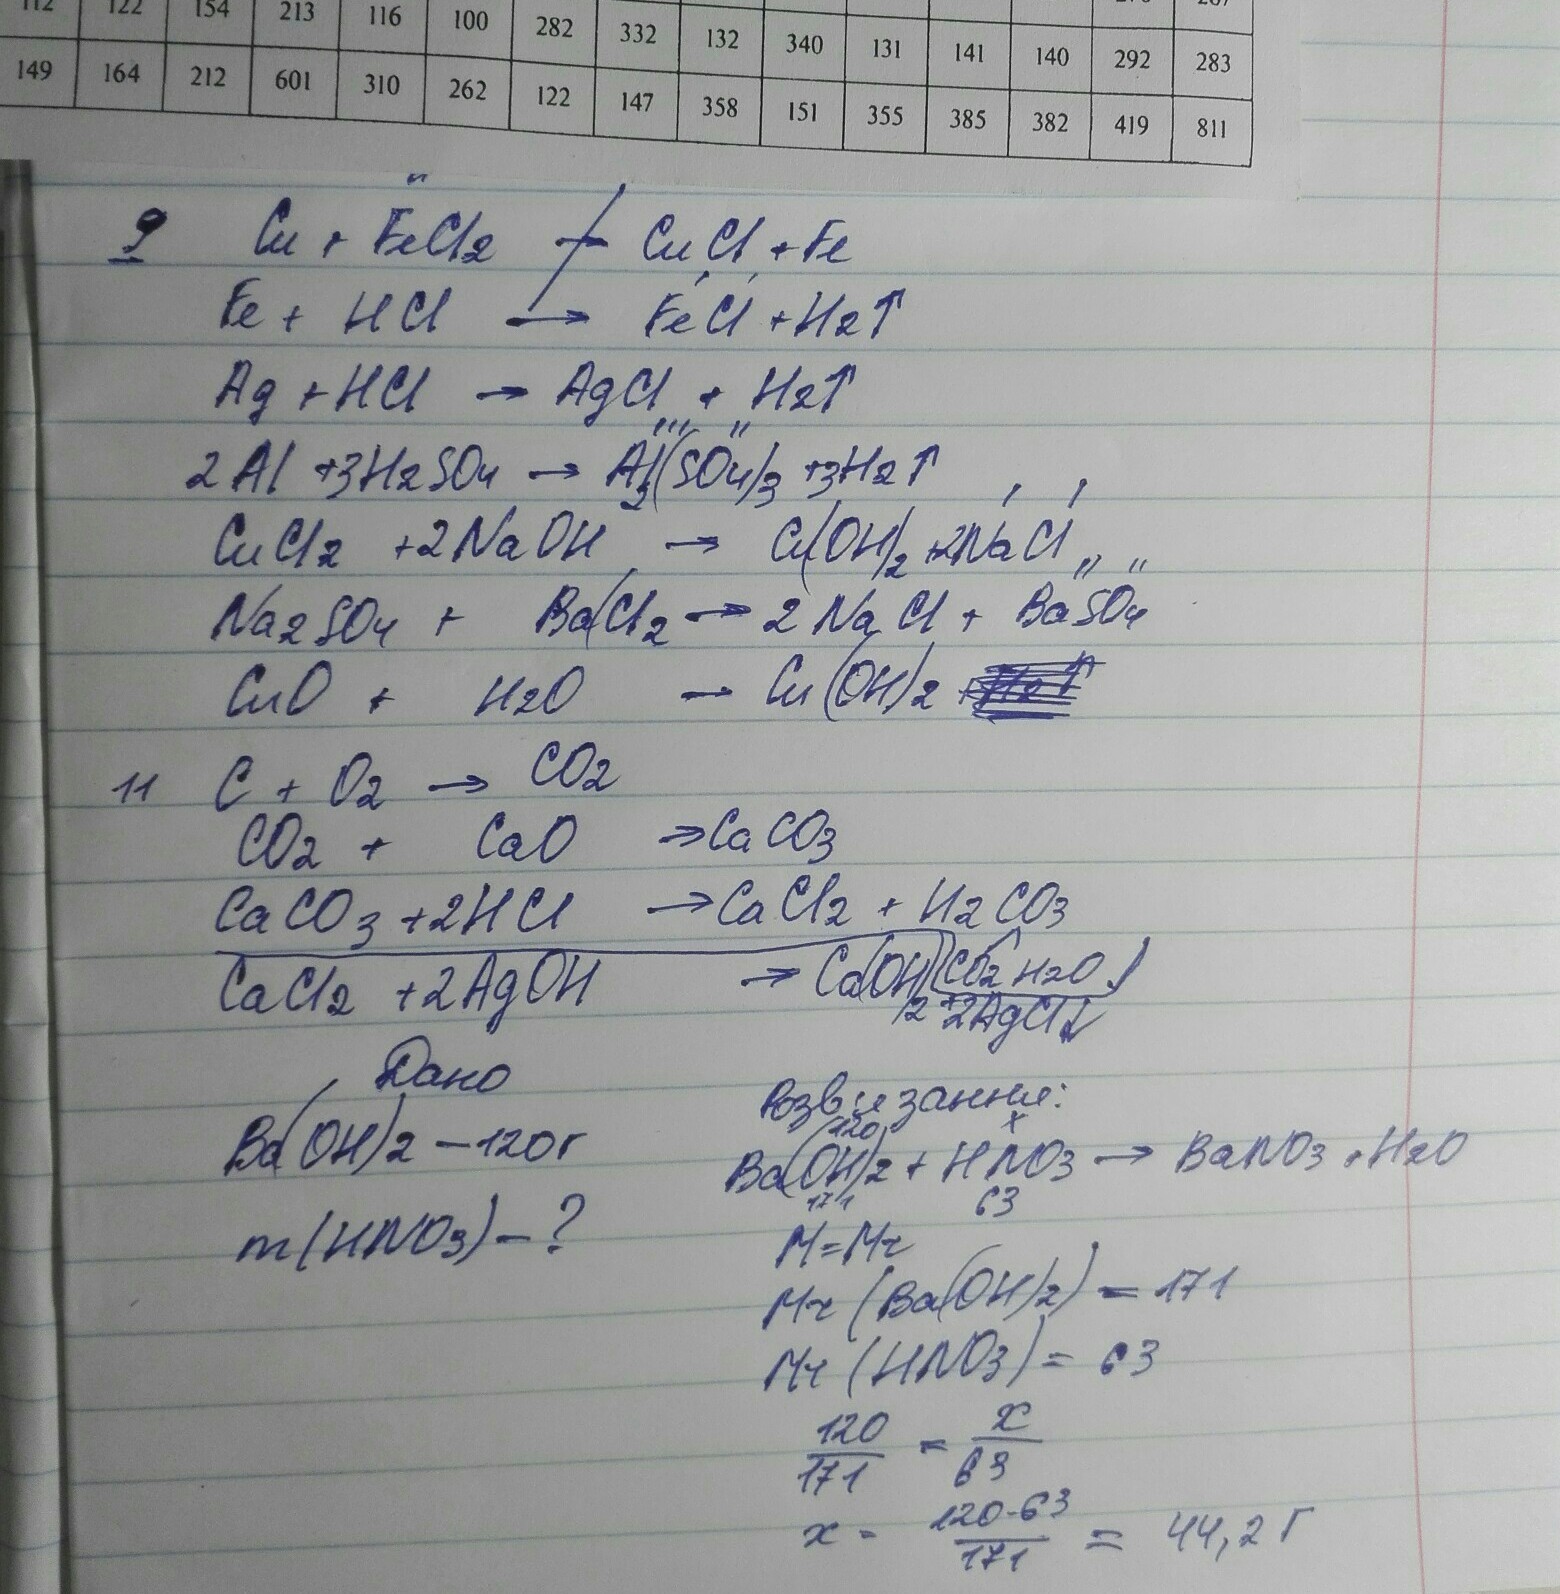 112 122 154 213 116 100 282 332 132 340 131 141 140 292 283
149 164 212 601 310 262 122 147 358 151 355 385 382 419 811
9 Cu + FeCl2 → CuCl + Fe
Fe + HCl → FeCl + H2↑
Ag + HCl → AgCl + H2↑
2Al + 3H2SO4 → Al2(SO4)3 + 3H2↑
CuCl2 + 2NaOH → Cu(OH)2 + 2NaCl
Na2SO4 + BaCl2 → 2NaCl + BaSO4
CuO + H2O → Cu(OH)2
11 C + O2 → CO2
CO2 + CaO → CaCO3
CaCO3 + 2HCl → CaCl2 + H2CO3
CO2 H2O
CaCl2 + 2AgOH → Ca(OH)2 + 2AgCl↓
Дано
Ba(OH)2 – 120г
m(HNO3) – ?
Розвязання:
120 x
Ba(OH)2 + HNO3 → BaNO3 + H2O
171 63
M = Mr
Mr (Ba(OH)2) = 171
Mr (HNO3) = 63
120/171 = x/63
x = 120·63/171 = 44,2 г